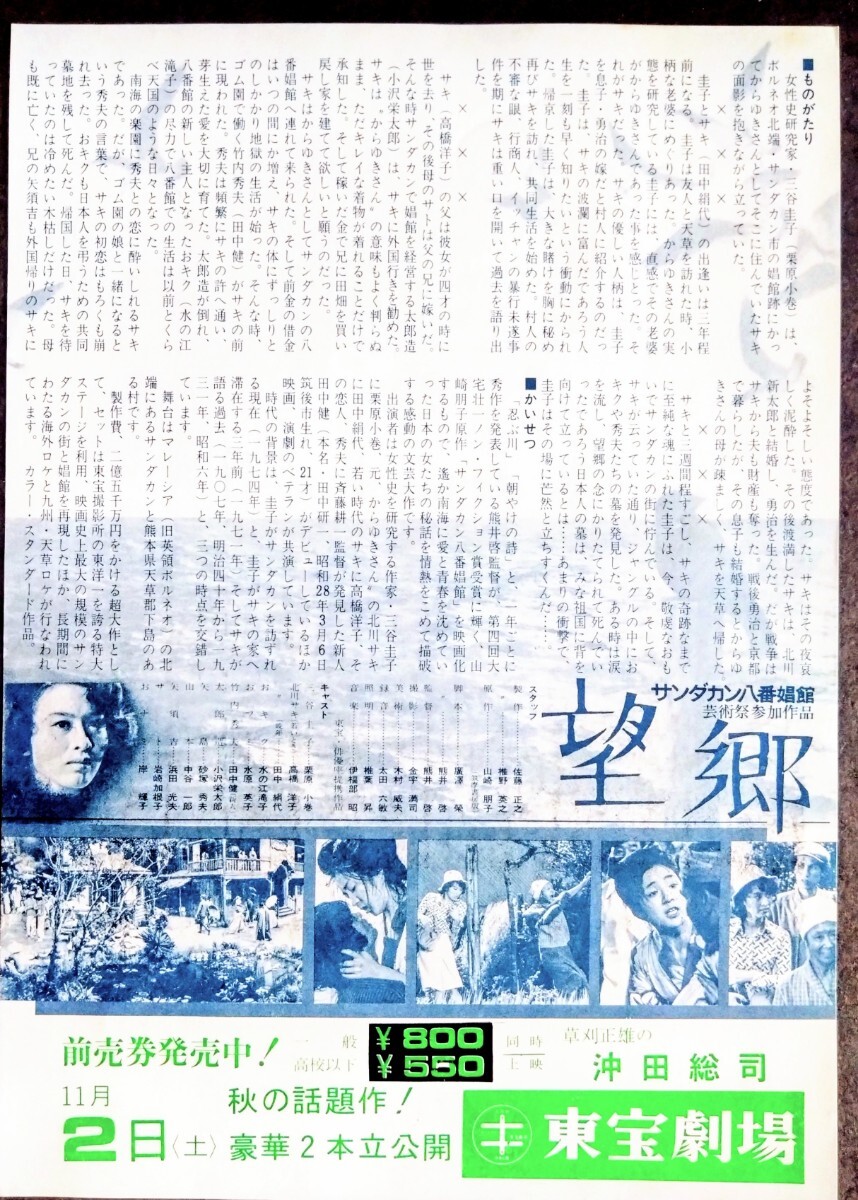 ■ものがたり
女性史研究家・三谷圭子（栗原小巻）は、
ボルネオ北端・サンダカン市の娼館跡にかつ
てからゆきさんとしてそこに住んでいたサキ
の面影を抱きながら立っていた。
圭子とサキ（田中絹代）の出逢いは三年程
前になる。圭子は友人と天草を訪れた時、小
柄な老婆にめぐりあった。からゆきさんの実
態を研究している圭子には、直感でその老婆
がからゆきさんであった事を感じとった。そ
れがサキだった。サキの優しい人柄は、圭子
を息子・勇治の嫁だと村人に紹介するのだっ
た。圭子は、サキの波瀾に富んだであろう人
生を一刻も早く知りたいという衝動にかられ
た。帰京した圭子は、大きな賭けを胸に秘め
再びサキを訪れ、共同生活を始めた。村人の
不審な眼、行商人、イッチャンの暴行未遂事
件を期に、サキは重い口を開いて過去を語り出
した。
×　×　×
サキ（高橋洋子）の父は彼女が四才の時に
世を去り、その後母のサトは父の兄に嫁いだ。
そんな時サンダカンで娼館を経営する太郎造
（小沢栄太郎）は、サキに外国行きを勧めた。
サキは〝からゆきさん〟の意味もよく判らぬ
まま、ただキレイな着物が着れることだけで
承知した。そして稼いだ金で兄に田畑を買い
戻し家を建てて欲しいと願うのだった。
サキはからゆきさんとしてサンダカンの八
番娼館へ連れて来られた。そして前金の借金
はいつの間にか増え、サキの体にずっしりと
のしかかり地獄の生活が始った。そんな時、
ゴム園で働く竹内秀夫（田中健）がサキの前
に現われた。秀夫は頻繁にサキの許へ通い、
芽生えた愛を大切に育てた。太郎造が倒れ、
八番館の新しい主人となったおキク（水の江
滝子）の尽力で八番館での生活は以前とくら
べ天国のような日々となった。
南海の楽園に秀夫との恋に酔いしれるサキ
であった。だが、ゴム園の娘と一緒になると
いう秀夫の言葉で、サキの初恋はもろくも崩
れ去った。おキクも日本人を弔うための共同
墓地を残して死んだ。帰国した日、サキを待
っていたのは冷めたい木枯しだけだった。母
も既に亡く、兄の矢須吉も外国帰りのサキに
よそよそしい態度であった。サキはその夜哀
しく泥酔した。その後渡満したサキは、北川
新太郎と結婚し、勇治を生んだ。だが戦争は
サキから夫も財産も奪った。戦後勇治と京都
で暮らしたが、その息子も結婚するとからゆ
きさんの母が疎ましく、サキを天草へ帰した。
×　×　×
サキと三週間程すごし、サキの奇跡なまで
に至純な魂にふれた圭子は、今、敬虔なおも
いでサンダカンの街に佇んでいる。そして、
サキが云っていた通り、ジャングルの中にお
キクや秀夫たちの墓を発見した。ある時は涙
を流し、望郷の念にかりたてられて死んでい
ったであろう日本人の墓は、みな祖国に背を
向けて立っているとは……あまりの衝撃で、
圭子はその場に茫然と立ちすくんだ……。
■かいせつ
「忍ぶ川」「朝やけの詩」と、一年ごとに
秀作を発表している熊井啓監督が、第四回大
宅壮一ノン・フィクション賞受賞に輝く、山
崎朋子原作「サンダカン八番娼館」を映画化
するもので、遥か南海に愛と青春を沈めてい
った日本の女たちの秘話を情熱をこめて描破
する感動の文芸大作です。
出演者は女性史を研究する作家・三谷圭子
に栗原小巻、元〝からゆきさん〟の北川サキ
に田中絹代、若い時代のサキに高橋洋子、そ
の恋人、秀夫に斉藤耕一監督が発見した新人
田中健（本名・田中研一、昭和28年3月6日
筑後市生れ、21才）がデビューしているほか
映画、演劇のベテランが共演しています。
時代の背景は、圭子がサンダカンを訪ずれ
る現在（一九七四年）と、圭子がサキの家へ
滞在する三年前（一九七一年）そしてサキが
語る過去（一九〇七年、明治四十年から一九
三一年、昭和六年）と、三つの時点を交錯し
ています。
舞台はマレーシア（旧英領ボルネオ）の北
端にあるサンダカンと熊本県天草郡下島のあ
る村です。
製作費、二億五千万円をかける超大作とし
て、セットは東宝撮影所の東洋一を誇る特大
ステージを利用、映画史上最大の規模のサン
ダカンの街と娼館を再現したほか、長期間に
わたる海外ロケと九州・天草ロケが行なわれ
ています。　カラー・スタンダード作品。
サンダカン八番娼館
芸術祭参加作品
望郷
スタッフ
製作 佐藤正之
椎野英之
原作 山崎朋子
脚本 廣澤栄
熊井啓
監督 熊井啓
撮影 金宇満司
美術 木村威夫
録音 太田六敏
照明 椎葉昇
音楽 伊福部昭
東宝・俳優座提携作品
キャスト
三谷圭子 栗原小巻
北川サキ 高橋洋子
田中絹代
おキク 水の江滝子
水原英子
竹内秀夫 田中健
太郎造 小沢栄太郎
砂塚秀夫
中谷一郎
矢須吉 浜田光夫
サト 岩崎加根子
岸輝子
前売券発売中！
一般 ¥800
高校以下 ¥550
同時上映
草刈正雄の
沖田総司
11月
2日〈土〉
秋の話題作！
豪華2本立公開
東宝劇場